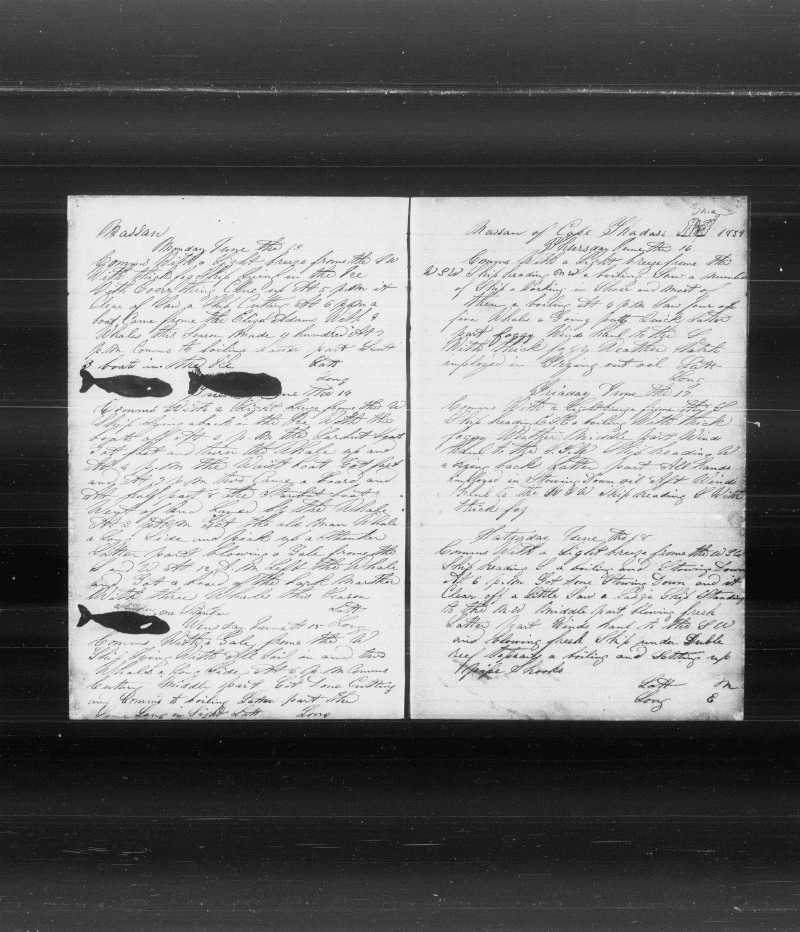 Massan
Monday June the 13
Comms With a Light breeze frome the S W
With thick fog Ship lying in the Ice
With Every thing Clue up At 5 p.m it
Clear of Saw a Ship Cutting At 6 p.m a
boat Came frome the Eliza Adams With 9
Whales this Season made 11 hundred At 7
p.m Comms to boiling Latter part Sent
3 boats in the Ice Latt
Long
June the 14
Comms With a Light breeze frome the W
Ship lying aback in the Ice With the
boats off At 2 p.m the Larbord boat
Got fast and turn the Whale up and
At 4 p.m the Waist boat Got fast
and At 7 p.m two Came a board and
At half past 8 the Starbord boat
Went of and
At 2 A.M Got the Whale
a Long Side and pick up a
Latter part blowing a Gale frome the
S and W At 12 A.M Left the Whale
and Got a board of the bark Marther
With three Whales this Season
Latt
Wensday June the 15 Long
Comms With a Gale frome the W
Ship lying With All Sail in and the
Whale a Long Side At 5 p.m Comms
Cutting Middle part Got done Cutting
and Comms to boiling Latter part the
Same Land in Sight Latt Long
Massan of Cape Thadass Ship 1859
Thursday June the 16
Comms With a Light breeze frome the
W S W Ship heading NW a boiling Saw a number
of Ship a Working in Shore and most of
them a boiling At 4 p.m Saw four or
five Whale a Going pretty Quick Latter
part foggy Winds hand to the S
With thick foggy Weather Watch
employed in Latt
Long
Friday June the 17
Comms With a Light breeze frome the S
Ship heading E.S.E a boiling With thick
foggy Weather Middle part Wind
hand to the S.S.W Ship heading W
a drying back Latter part All hands
Employed in Stowing Down oil Aft Winds
hand to the S W Ship heading S With
thick fog
Saturday June the 18
Comms With a Light breeze frome the W S W
Ship heading S a boiling and Stowing Down
At 6 p.m Got done Stowing Down and it
Clear off a Little Saw a Large Ship Standing
to the NW Middle part blowing fresh
Latter part Winds hand to the S W
and blowing fresh Ship under Duble
reef topsails a boiling and Setting up
Shooks
Latt N
Long E